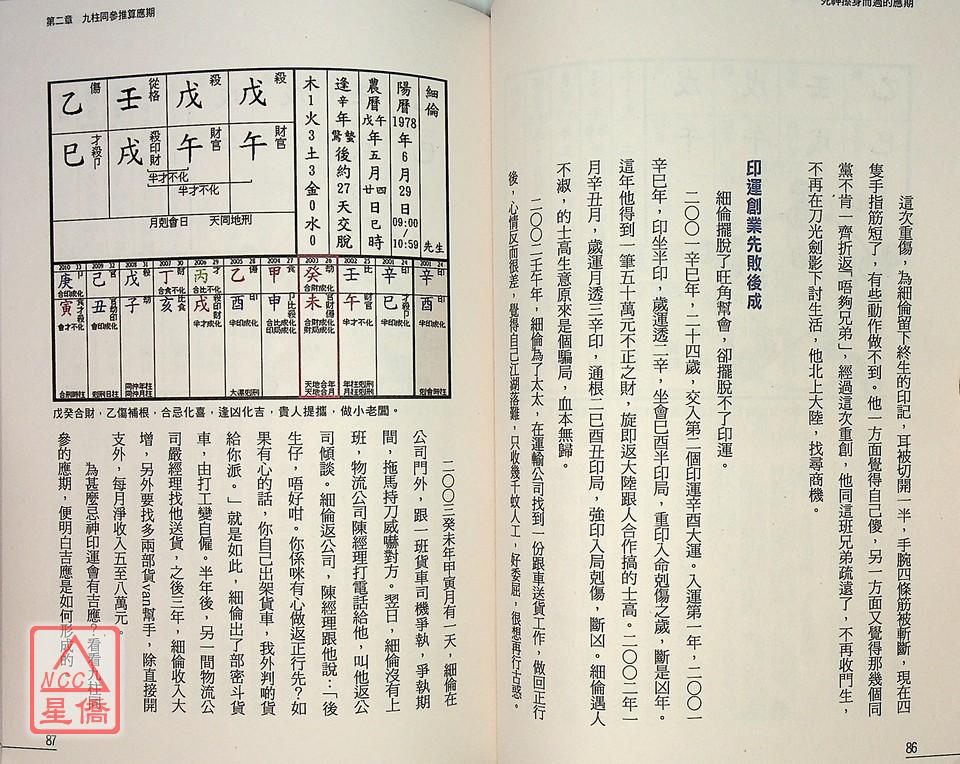 死神擦身而過的應期
這次重傷，為細倫留下終生的印記，耳被切開一半，手腕四條筋被斬斷，現在四
隻手指筋短了，有些動作做不到。他一方面覺得自己傻，另一方面又覺得那幾個同
黨不肯一齊折返「唔夠兄弟」，經過這次重創，他同這班兄弟疏遠了，不再收門生，
不再在刀光劍影下討生活，他北上大陸，找尋商機。
印運創業先敗後成
細倫擺脫了旺角幫會，卻擺脫不了印運。
二〇〇一辛巳年，二十四歲，交入第二個印運辛酉大運。入運第一年，二〇〇一
辛巳年，印坐半印，歲運透二辛，坐會巳酉半印局，重印入命剋傷之歲，斷是凶年。
這年他得到一筆五十萬元不正之財，旋即返大陸跟人合作搞的士高。二〇〇二年一
月辛丑月，歲運月透三辛印，通根二巳酉丑印局，強印入局剋傷，斷凶。細倫遇人
不淑，的士高生意原來是個騙局，血本無歸。
二〇〇二壬午年，細倫為了太太，在運輸公司找到一份跟車送貨工作，做回正行
後，心情反而很差，覺得自己江湖落難，只收幾千蚊人工，好委屈，很想再行古惑。
86
第二章 九柱同參推算應期
細倫 先生
陽曆1978年6月29日09:00/10:59
農曆戊午年五月廿四日巳時
逢辛年驚蟄後約27天交脫
木1火3土3金0水0
殺 戊 午 財官
殺 戊 午 財官
從格 壬 戌 殺印財
傷 乙 巳 才殺卩
半才不化
半才不化
月剋會日 天同地刑
2001 24 辛 印 酉 印
2001 24 辛 印 巳 才殺卩
2002 25 壬 比 午 財官
2003 26 癸 劫 未 官傷財
2004 27 甲 食 申
2005 28 乙 傷 酉 印
2006 29 丙 才 戌 殺印財
2007 30 丁 財 亥
2008 31 戊 殺 子 劫
2009 32 己 官 丑 官劫印
2010 33 庚 寅 食才殺
戊癸合財，乙傷補根，合忌化喜，逢凶化吉，貴人提攜，做小老闆。
二〇〇三癸未年甲寅月有一天，細倫在
公司門外，跟一班貨車司機爭執，爭執期
間，拖馬持刀威嚇對方。翌日，細倫沒有上
班，物流公司陳經理打電話給他，叫他返公
司傾談。細倫返公司，陳經理跟他說：「後
生仔，唔好咁。你係咪有心做返正行先？如
果有心的話，你自己出架貨車，我外判啲貨
給你派。」就是如此，細倫出了部密斗貨
車，由打工變自僱。半年後，另一間物流公
司嚴經理找他送貨，之後三年，細倫收入大
增，另外要找多兩部貨van幫手，除直接開
支外，每月淨收入五至八萬元。
為甚麼忌神印運會有吉應？看看九柱同
參的應期，便明白吉應是如何形成的
87
NCC
星僑